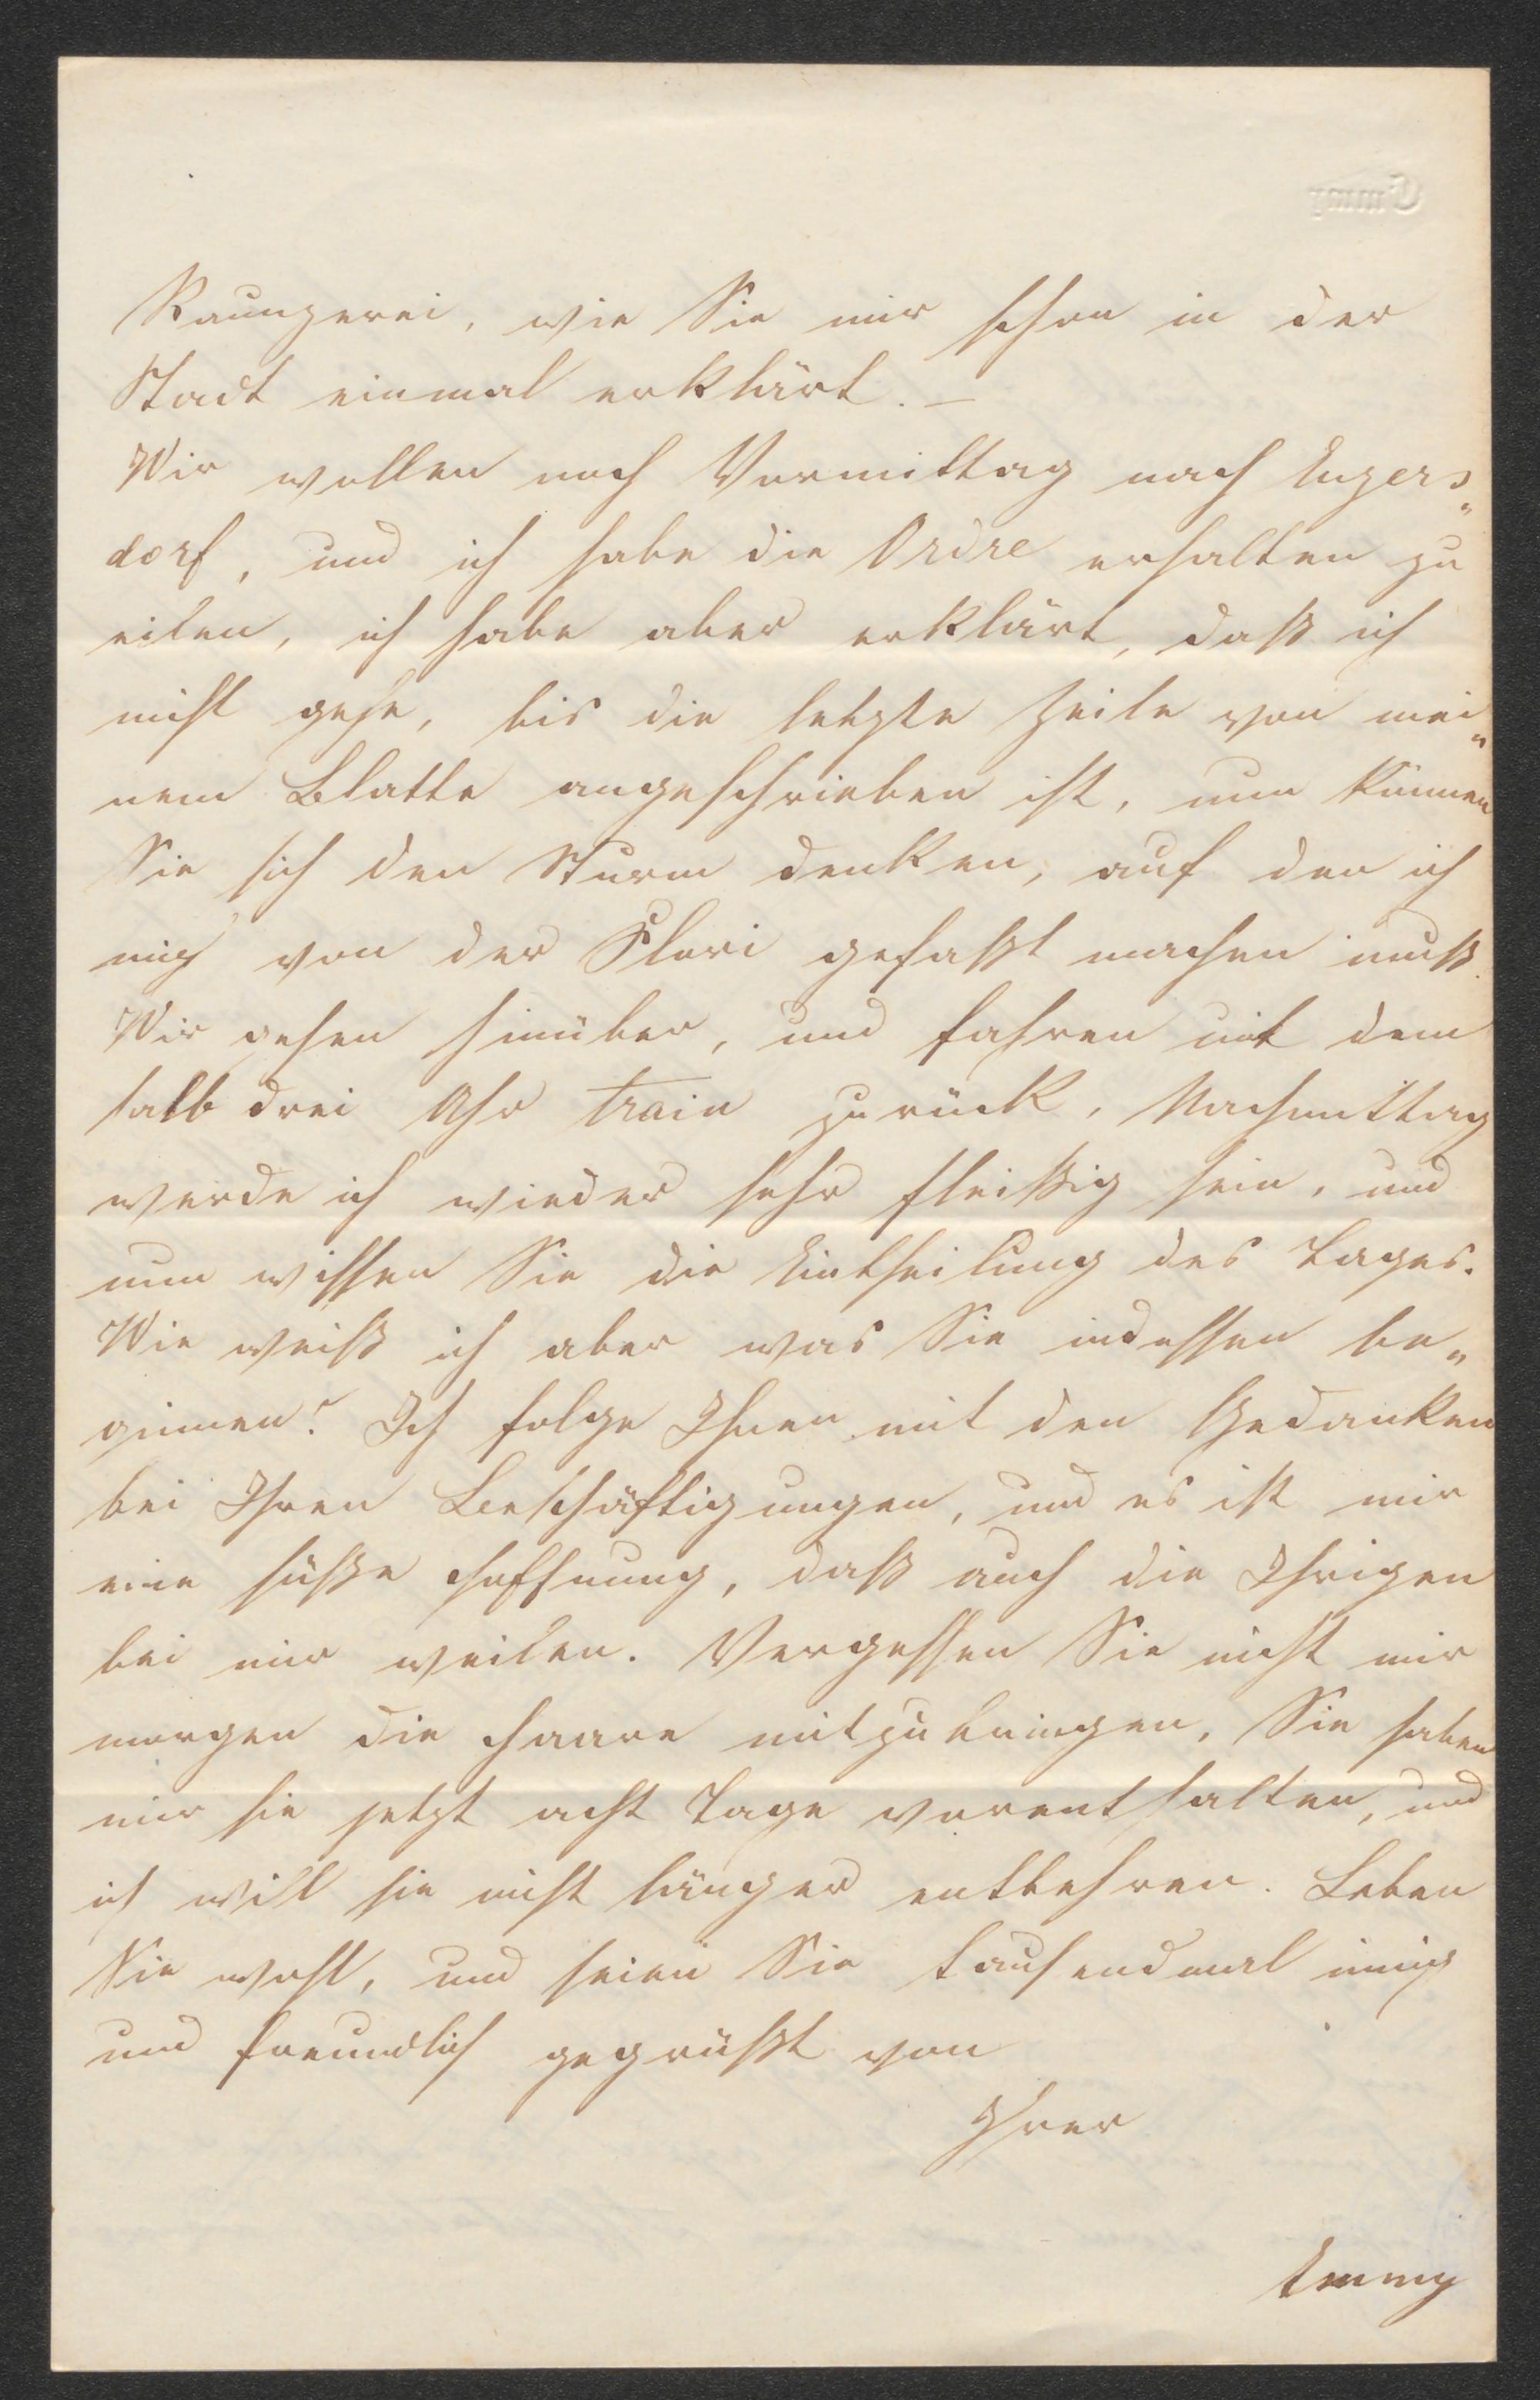 Emmy
Raunzerei, wie Sie mir schon in der
Stadt einmal erklärt. –
Wir wollen noch Vormittag nach Enzers„
dorf, und ich habe die Ordre erhalten zu
eilen, ich habe aber erklärt, daß ich
nicht gehe, bis die letzte Zeile von mei„
nem Blatte angeschrieben ist, nun können
Sie sich den Sturm denken, auf den ich
mich von der Flori gefaßt machen muß.
Wir gehen hinüber, und fahren mit dem
halb drei Uhr train zurück, Nachmittag
werde ich wieder sehr fleißig sein, und
nun wissen Sie die Eintheilung des Tages.
Wie weiß ich aber was Sie indessen be„
ginnen? Ich folge Ihnen mit den Gedanken
bei Ihren Beschäftigungen, und es ist mir
eine süße Hoffnung, daß auch die Ihrigen
bei mir weilen. Vergessen Sie nicht mir
morgen die Haare mitzubringen, Sie haben
mir sie jetzt acht Tage vorenthalten, und
ich will sie nicht länger entbehren. Leben
Sie wohl, und seien Sie tausendmal innig
und freundlich gegrüßt von
Ihrer
Emmy